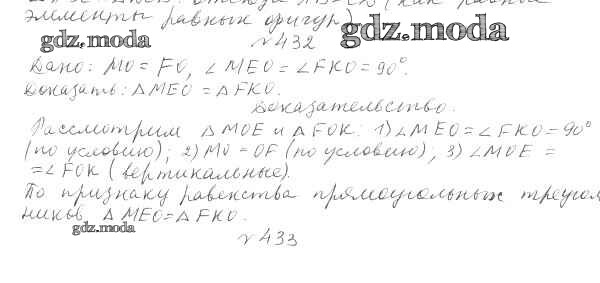 элементы равных фигур)
gdz.moda
gdz.moda
№432
Дано: MO = FO, ∠MEO = ∠FKO = 90°.
Доказать: △MEO = △FKO.
Доказательство.
Рассмотрим △MOE и △FOK: 1) ∠MEO = ∠FKO = 90°
(по условию); 2) MO = OF (по условию); 3) ∠MOE =
= ∠FOK (вертикальные).
По признаку равенства прямоугольных треуголь
ников, △MEO = △FKO.
gdz.moda
№433